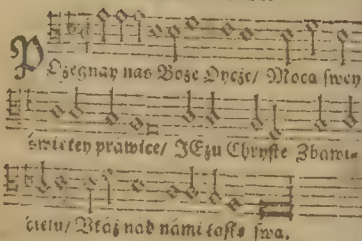 Pożegnay nas Boże Oycze/ Mocą swey
świętey prawice/ JEzu Chryste Zbawi-
cielu/ Wtáż nad námi łáskę swą.